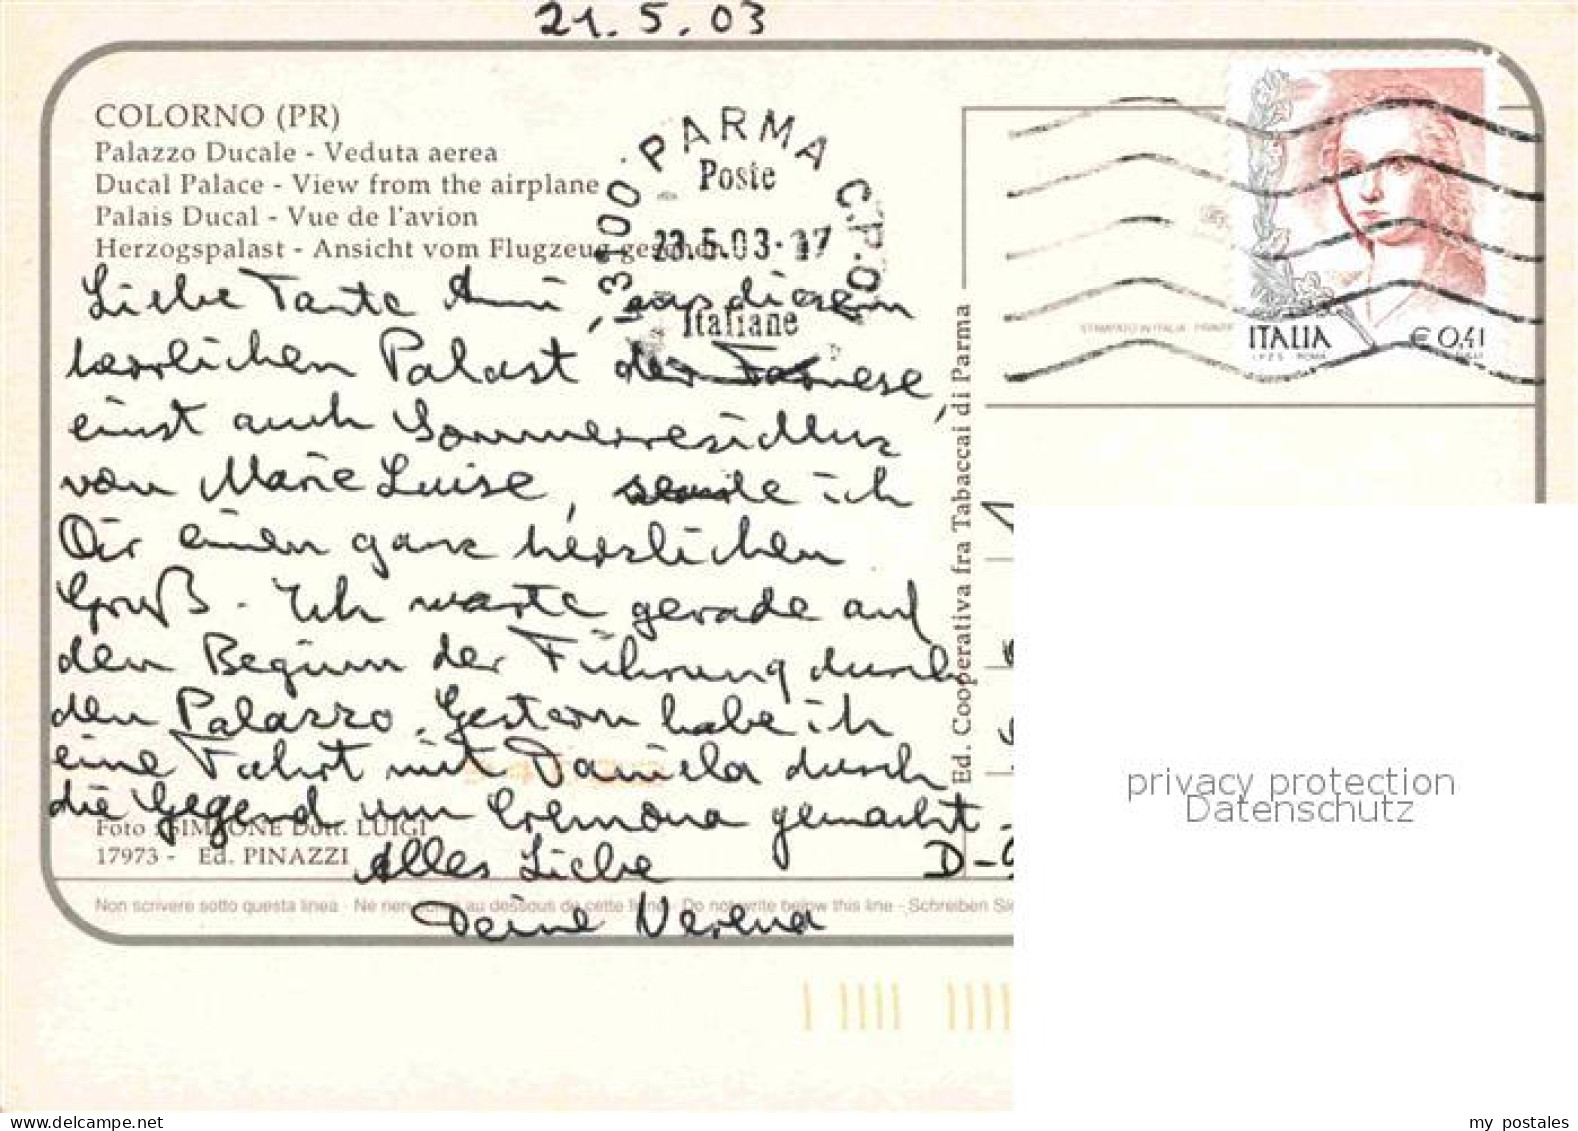 21.5.03
COLORNO (PR)
Palazzo Ducale - Veduta aerea
Ducal Palace - View from the airplane
Palais Ducal - Vue de l'avion
Herzogspalast - Ansicht vom Flugzeug gesehen
43100 PARMA C.P.O.
Poste
23.5.03-17
Italiane
STAMPATO IN ITALIA
ITALIA € 0,41
I.P.Z.S. ROMA
Liebe Tante Anni, aus diesem
herrlichen Palast der Farnese,
einst auch Sommerresidenz
von Marie Luise, sende ich
Dir einen ganz herzlichen
Gruß. Ich warte gerade auf
den Beginn der Führung durch
den Palazzo. Gestern habe ich
eine Fahrt mit Daniela durch
die Gegend um Cremona gemacht.
Alles Liebe
Deine Verena
Foto: SIMEONE Dott. LUIGI
17973 - Ed. PINAZZI
Non scrivere sotto questa linea - Ne rien écrire au dessous de cette ligne - Do not write below this line - Schreiben Sie
Ed. Cooperativa fra Tabaccai di Parma
D-
privacy protection
Datenschutz
my postales